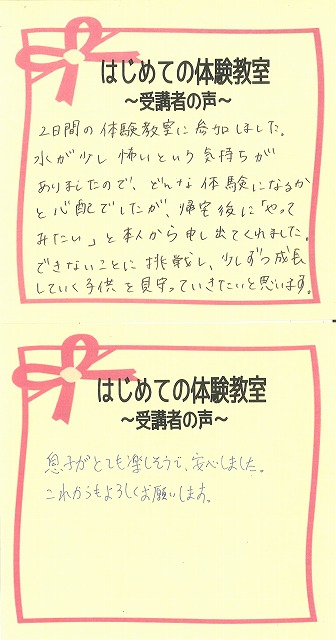 はじめての体験教室
～受講者の声～
2日間の体験教室に参加しました。
水が少し怖いという気持ちが
ありましたので、どんな体験になるか
と心配でしたが、帰宅後に「やって
みたい」と本人から申し出てくれました。
できないことに挑戦し、少しずつ成長
していく子供を見守っていきたいと思います。
はじめての体験教室
～受講者の声～
息子がとても楽しそうで、安心しました。
これからもよろしくお願いします。